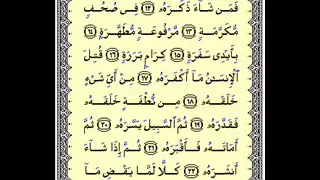 فَمَن شَآءَ ذَكَرَهُۥ ۝١٢ فِى صُحُفٍ
مُّكَرَّمَةٍ ۝١٣ مَّرْفُوعَةٍ مُّطَهَّرَةٍۭ ۝١٤
بِأَيْدِى سَفَرَةٍ ۝١٥ كِرَامٍۭ بَرَرَةٍ ۝١٦ قُتِلَ
ٱلْإِنسَٰنُ مَآ أَكْفَرَهُۥ ۝١٧ مِنْ أَىِّ شَىْءٍ
خَلَقَهُۥ ۝١٨ مِن نُّطْفَةٍ خَلَقَهُۥ
فَقَدَّرَهُۥ ۝١٩ ثُمَّ ٱلسَّبِيلَ يَسَّرَهُۥ ۝٢٠ ثُمَّ
أَمَاتَهُۥ فَأَقْبَرَهُۥ ۝٢١ ثُمَّ إِذَا شَآءَ
أَنشَرَهُۥ ۝٢٢ كَلَّا لَمَّا يَقْضِ مَآ